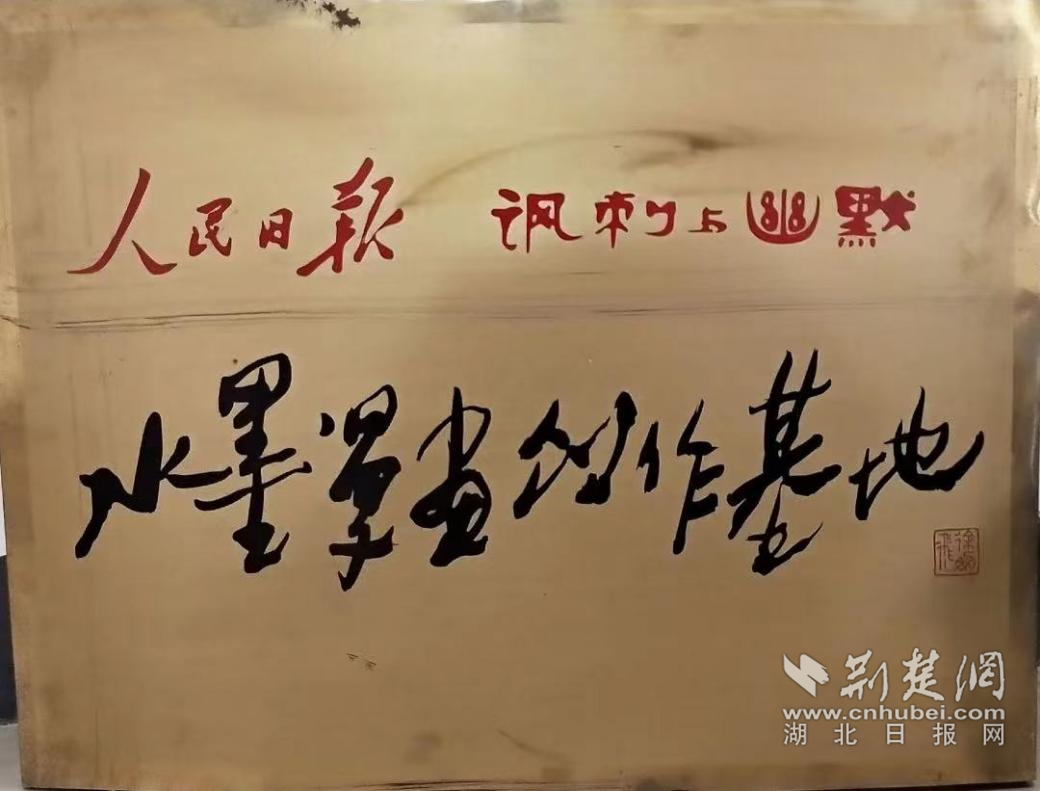 人民日报 讽刺与幽默
水墨漫画创作基地
荆楚网
www.cnhubei.com
湖北日报网